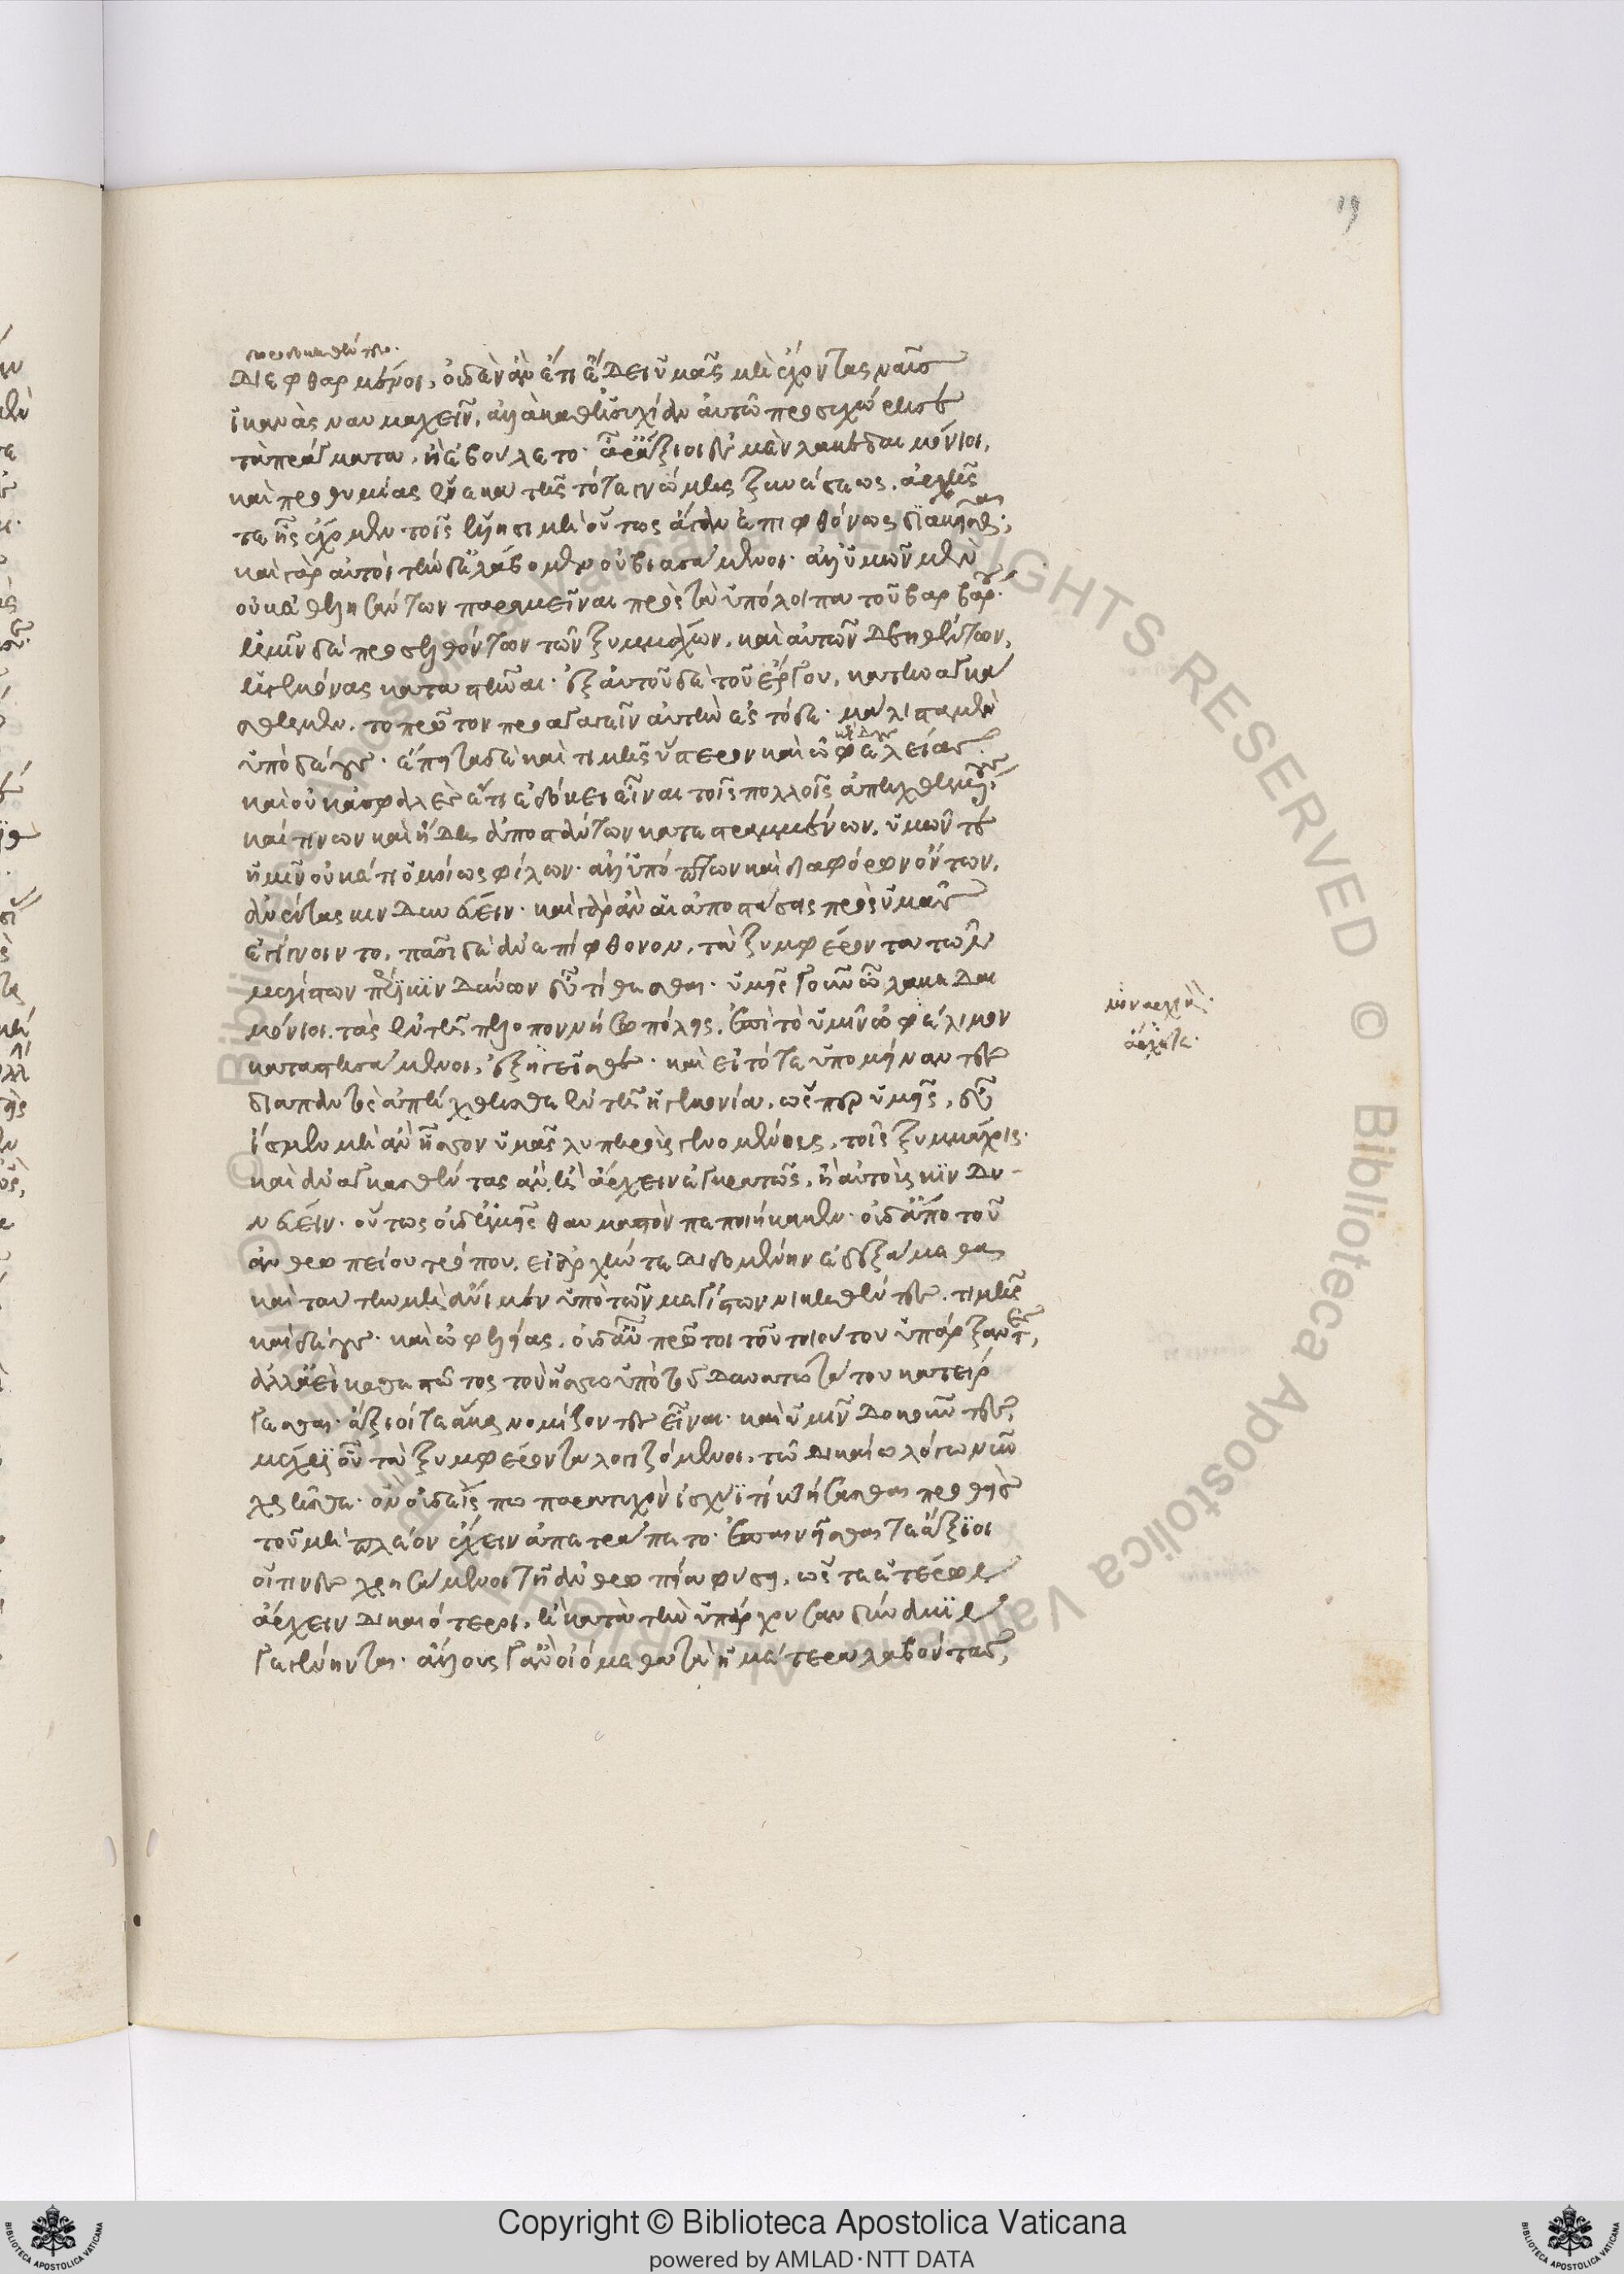 19
διεφθαρμένοι, οὐδὲν ἂν ἔτι ἔδει ὑμᾶς μὴ ἔχοντας ναῦς
ἱκανὰς ναυμαχεῖν, ἀλλὰ καθ' ἡσυχίαν ἂν αὐτῶ προσεχώρησε
τὰ πράγματα, ἧ ἐβούλετο. ἆρ' ἄξιοί ἐσμεν λακεδαιμόνιοι,
καὶ προθυμίας ἕνεκα τῆς τότε γνώμης ξυνέσεως, ἀρχῆς
τε ἧς ἔχομεν τοῖς ἕλλησι μὴ οὕτως ἄγαν ἐπιφθόνως διακεῖσθαι;
καὶ γὰρ αὐτοὶ τήνδε ἐλάβομεν οὐ βιασάμενοι. ἀλλ' ὑμῶν μὲν
οὐκ ἐθελησάντων παραμεῖναι πρὸς τὰ ὑπόλοιπα τοῦ βαρβάρου.
ἡμῖν δὲ προσελθόντων τῶν ξυμμάχων, καὶ αὐτῶν δεηθέντων,
ἡγεμόνας καταστῆναι. ἐξ αὐτοῦ δὲ τοῦ ἔργου, κατηναγκά
σθημεν, τὸ πρῶτον προαγαγεῖν αὐτὴν ἐς τόδε. μάλιστα μὲν
ὑπὸ δέους. ἔπειτα δὲ καὶ τιμῆς ὕστερον καὶ ὠφελείας.
καὶ οὐκ ἀσφαλὲς ἔτι ἐδόκει εἶναι τοῖς πολλοῖς ἀπηχθημένους,
καί τινων καὶ ἤδη ἀποστάντων κατεστραμμένων, ὑμῶν τε
ἡμῖν οὐκέτι ὁμοίως φίλων. ἀλλ' ὑπόπτων καὶ διαφόρων ὄντων,
ἀνέντας κινδυνεύειν. καὶ γὰρ ἂν αἱ ἀποστάσεις πρὸς ὑμᾶς
ἐγίγνοντο. πᾶσι δὲ ἀνεπίφθονον, τὰ ξυμφέροντα τῶν
μεγίστων πέρι κινδύνων εὖ τίθεσθαι. ὑμεῖς γοῦν ὦ λακεδαι
μόνιοι, τὰς ἐν τῆ πελοποννήσω πόλεις, ἐπὶ τὸ ὑμῖν ὠφέλιμον
καταστησάμενοι, ἐξηγεῖσθε. καὶ εἰ τότε ὑπομείναντες
διαπαντὸς ἀπήχθησθε ἐν τῆ ἡγεμονία, ὥσπερ ἡμεῖς, εὖ
ἴσμεν μὴ ἂν ἧσσον ὑμᾶς λυπηροὺς γενομένους, τοῖς ξυμμάχοις.
καὶ ἀναγκασθέντας ἂν, ἢ ἄρχειν ἐγκρατῶς, ἢ αὐτοὺς κινδυ-
νεύειν. οὕτως οὐδ' ἡμεῖς θαυμαστὸν πεποιήκαμεν. οὐδ' ἀπὸ τοῦ
ἀνθρωπείου τρόπου, εἰ ἀρχήν τε διδομένην ἐδεξάμεθα
καὶ ταύτην μὴ ἀνεῖμεν ὑπὸ τῶν μεγίστων νικηθέντες, τιμῆς
καὶ δέους. καὶ ὠφελείας, οὐδ' αὖ πρῶτοι τοῦ τοιούτου ὑπάρξαντες,
ἀλλ' ἀεὶ καθεστῶτος τὸν ἥσσω ὑπὸ τοῦ δυνατωτέρου κατείρ
γεσθαι. ἄξιοί τε ἅμα νομίζοντες εἶναι. καὶ ὑμῖν δοκοῦντες,
μέχρις οὗ τὰ ξυμφέροντα λογιζόμενοι, τῶ δικαίω λόγω νῦν
χρῆσθε. ὃν οὐδείς πω παρατυχὸν ἰσχύϊ τι κτήσασθαι προθεὶς
τοῦ μὴ πλέον ἔχειν ἀπετράπετο. ἐπαινεῖσθαί τε ἄξιοι
οἵτινες χρησάμενοι τῆ ἀνθρωπεία φύσει, ὥστε ἑτέρων
ἄρχειν δικαιότεροι, ἢ κατὰ τὴν ὑπάρχουσαν δύναμιν
γεγένηνται. ἄλλους γ' ἂν οἰόμεθα τὰ ἡμέτερα λαβόντας,